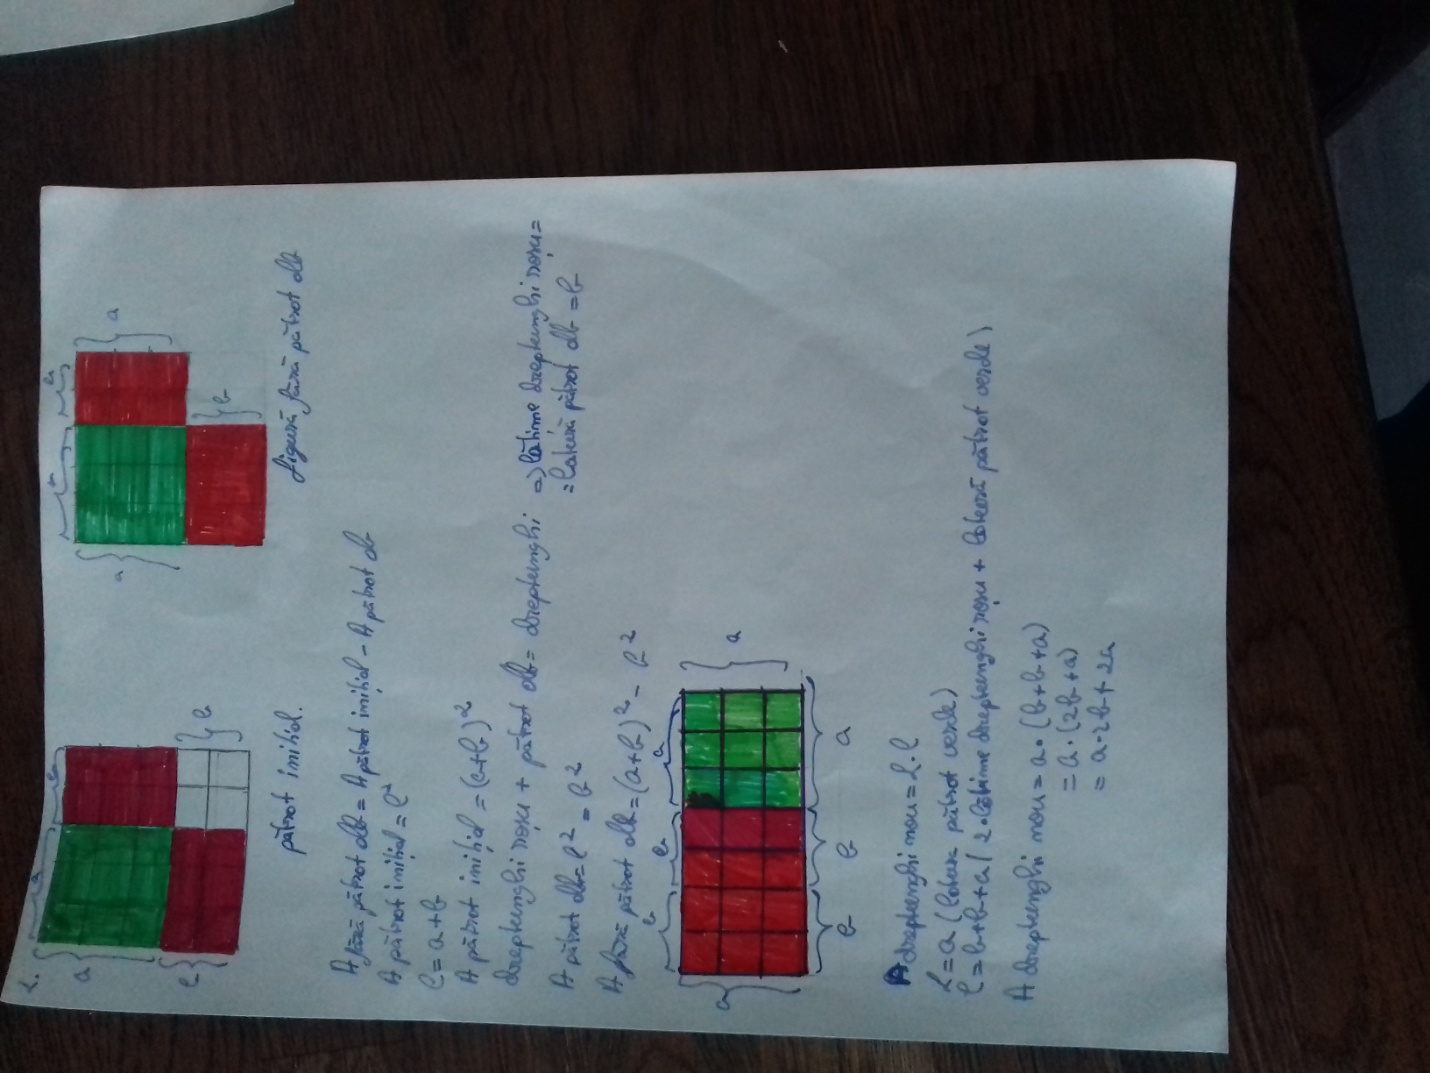 1.
a
b
a
b
b
pătrat inițial.
a
b
a
a
b
figură fără pătrat alb
A fără pătrat alb = A pătrat inițial - A pătrat alb
A pătrat inițial = l²
l = a+b
A pătrat inițial = (a+b)²
dreptunghi roșu + pătrat alb = dreptunghi => lățime dreptunghi roșu =
= latură pătrat alb = b
A pătrat alb = l² = b²
A fără pătrat alb = (a+b)² - b²
b
b
a
a
a
b
b
a
A dreptunghi nou = L·l
L = a (latura pătrat verde)
l = b+b+a ( 2·lățime dreptunghi roșu + latură pătrat verde)
A dreptunghi nou = a·(b+b+a)
= a·(2b+a)
= a·2b+2a